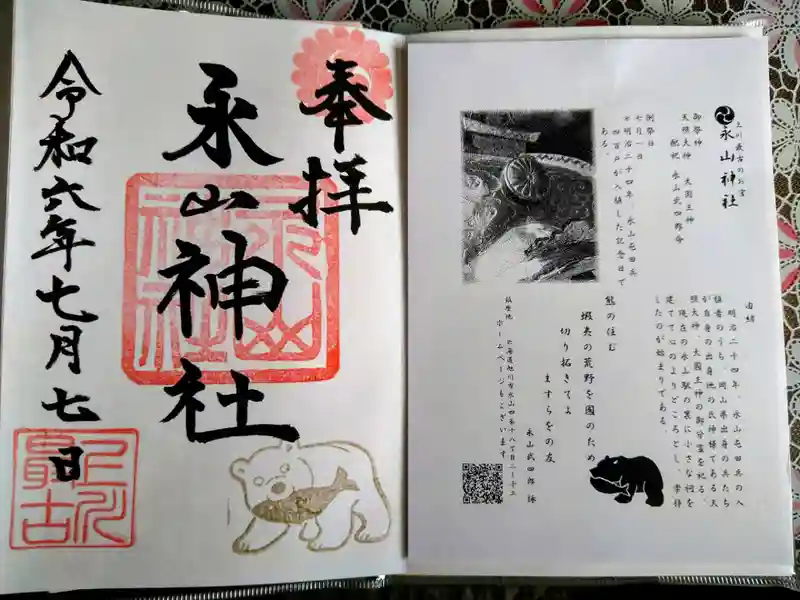 奉拝
永山神社
永山神社
令和六年七月七日
上川最古
上川最古のお宮
永山神社
御祭神
天照大神 大国主神
配祀 永山武四郎命
例祭日
七月一日
※明治二十四年、永山屯田兵
四百戸が入植した記念日で
ある。
由緒
明治二十四年、永山屯田兵の入
植者のうち、岡山県出身の兵たち
が自身の出身地の氏神様である天
照大神、大国主神の御分霊を祀る、
現在の永山駅の裏に小さな祠を
建てて心のよりどころとし、奉拝
したのが始まりである。
熊の住む
蝦夷の荒野を国のため
切り拓きてよ
ますらをの友
永山武四郎 詠
鎮座地 北海道旭川市永山四条十八丁目二ー十三
ホームページもございます